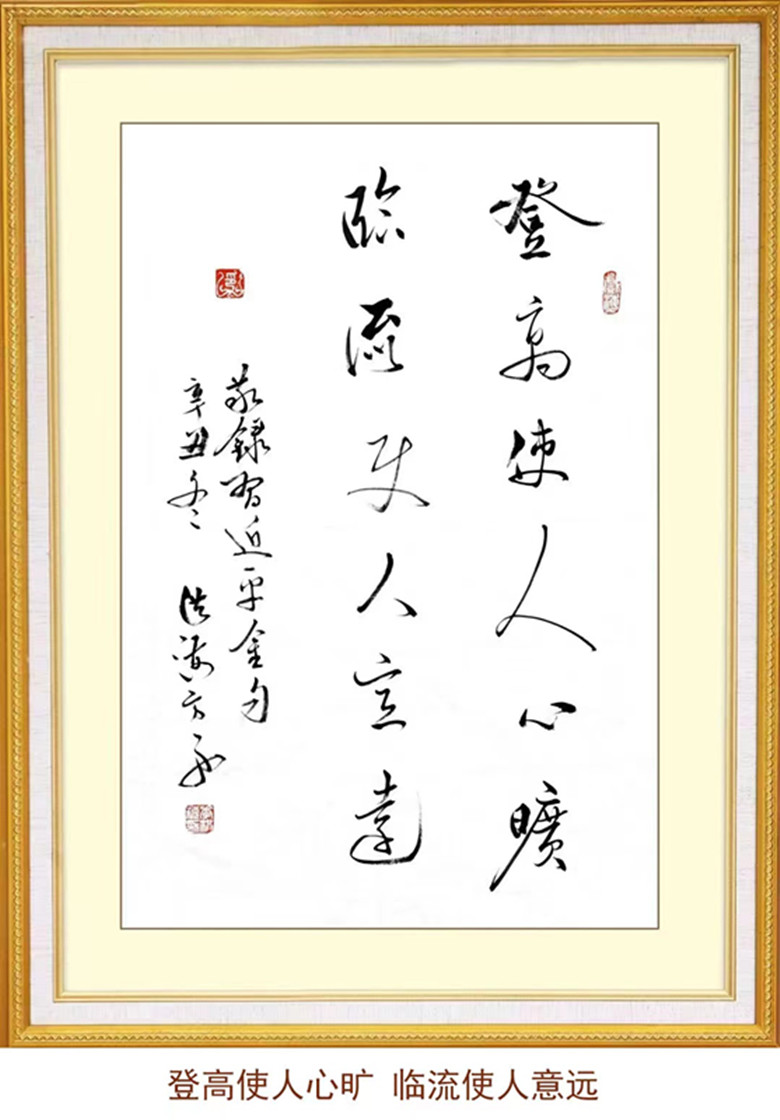 登高使人心曠
臨流使人意遠
敬錄習近平金句
辛丑冬
登高使人心旷 临流使人意远